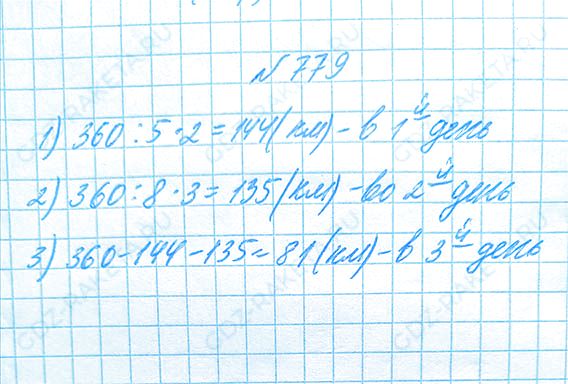 № 779
1) 360 : 5 · 2 = 144 (км) - в 1 й день
2) 360 : 8 · 3 = 135 (км) - во 2 й день
3) 360 - 144 - 135 = 81 (км) - в 3 й день